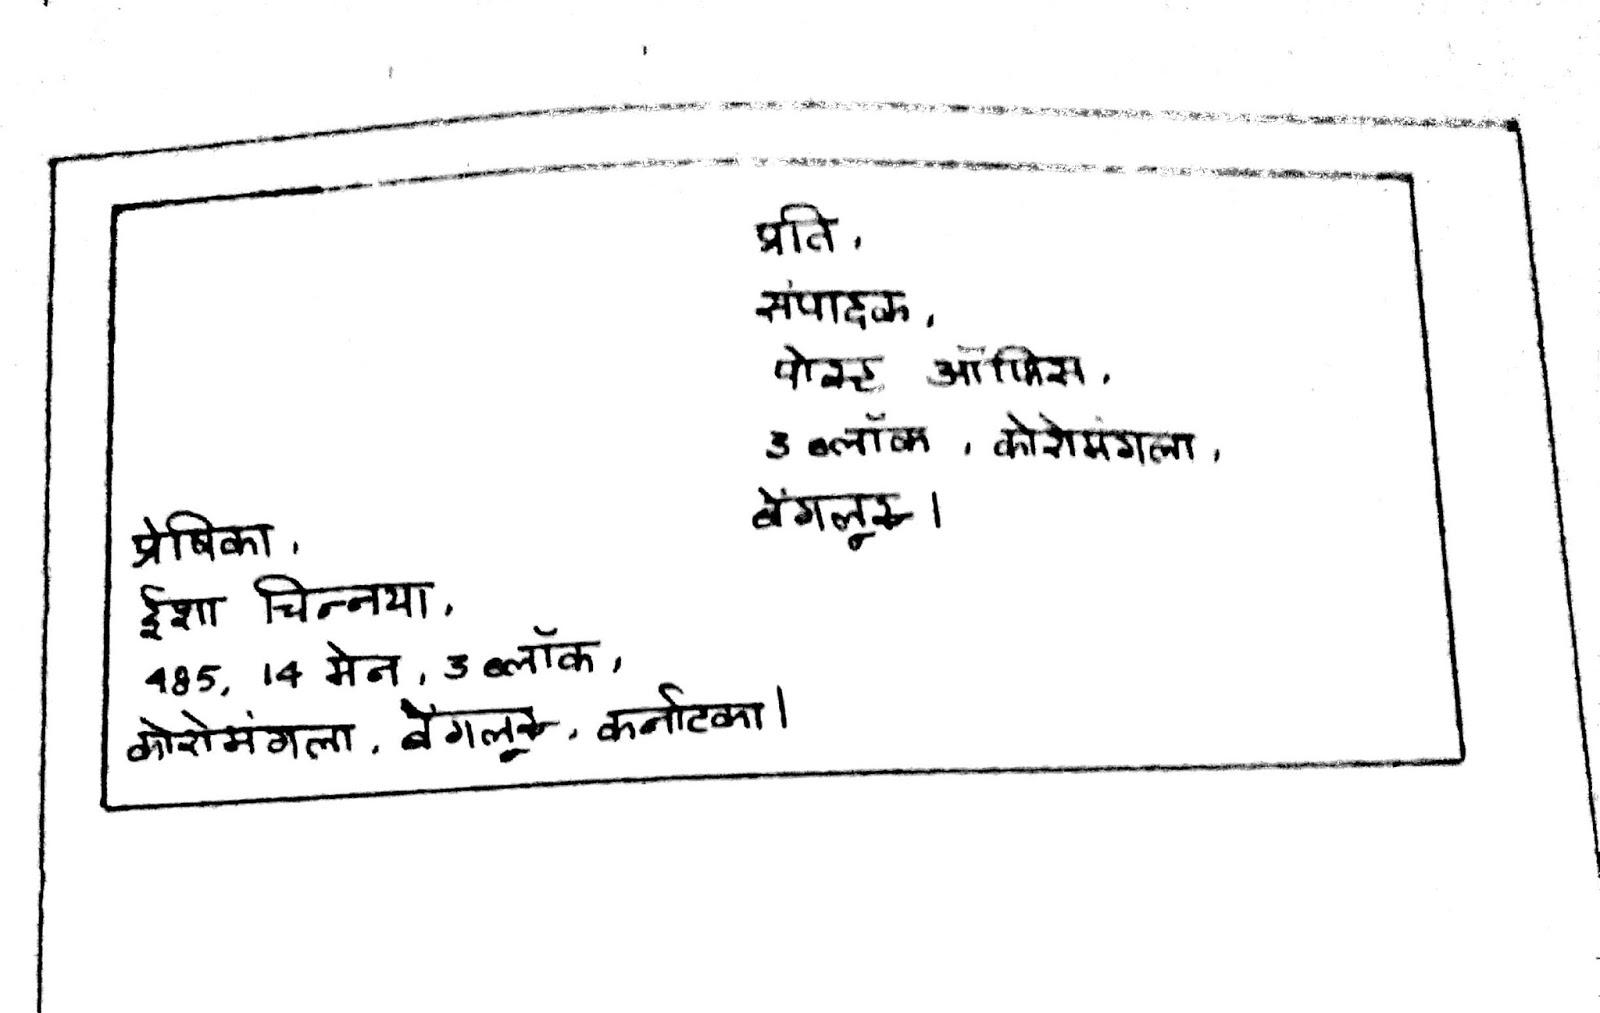 प्रति,
संपादक,
पोस्ट ऑफिस,
3 ब्लॉक, कोरोमंगला,
बेंगलूरु।
प्रेषिका,
ईशा चिन्नया,
485, 14 मेन, 3 ब्लॉक,
कोरोमंगला, बेंगलूरु, कर्नाटका।